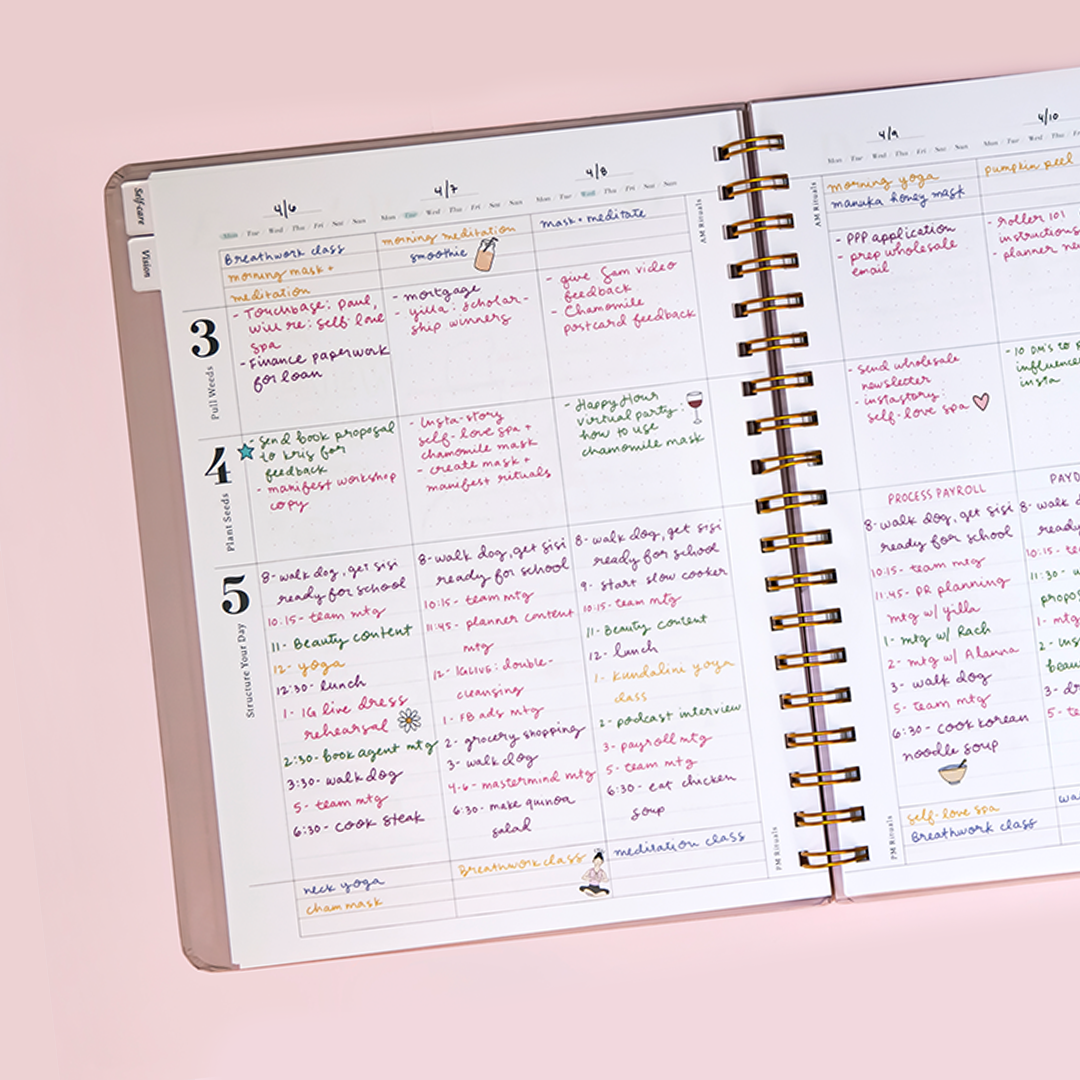 Self-care
Vision
4/6
Mon / Tue / Wed / Thu / Fri / Sat / Sun
Breathwork class
morning mask +
meditation
3
Pull Weeds
- Touchbase: Paul,
will re: self love
spa
- Finance paperwork
for loan
4
Plant Seeds
- send book proposal
to kris for
feedback
- manifest workshop
copy
5
Structure Your Day
8- walk dog, get sisi
ready for school
10:15- team mtg
11- Beauty content
12- yoga
12:30- lunch
1- IG live dress
rehearsal
2:30- book agent mtg
3:30- walk dog
5- team mtg
6:30- cook steak
neck yoga
cham mask
4/7
Mon / Tue / Wed / Thu / Fri / Sat / Sun
morning meditation
smoothie
- mortgage
- yilla: scholar-
ship winners
- Insta-story
self-love spa +
chamomile mask
- create mask +
manifest rituals
8- walk dog, get sisi
ready for school
10:15- team mtg
11:45- planner content
mtg
12- IGLIVE: double-
cleansing
1- FB ads mtg
2- grocery shopping
3- walk dog
4-6- mastermind mtg
6:30- make quinoa
salad
Breathwork class
4/8
Mon / Tue / Wed / Thu / Fri / Sat / Sun
mask + meditate
AM Rituals
- give Sam video
feedback
- Chamomile
postcard feedback
- Happy Hour
virtual party:
how to use
chamomile mask
8- walk dog, get sisi
ready for school
9- start slow cooker
10:15- team mtg
11- Beauty content
12- lunch
1- kundalini yoga
class
2- podcast interview
3- payroll mtg
5- team mtg
6:30- eat chicken
soup
meditation class
PM Rituals
AM Rituals
4/9
Mon / Tue / Wed / Thu / Fri / Sat / Sun
morning yoga
manuka honey mask
- PPP application
- prep wholesale
email
- send wholesale
newsletter
- instastory:
self-love spa
PROCESS PAYROLL
8- walk dog, get sisi
ready for school
10:15- team mtg
11:45- PR planning
mtg w/ yilla
1- mtg w/ Rach
2- mtg w/ Alanna
3- walk dog
5- team mtg
6:30- cook korean
noodle soup
PM Rituals
self-love spa
Breathwork class
4/10
Mon / Tue / Wed / Thu / Fri
pumpkin peel
- roller 101
instructions
- planner
- 10 DM's to
insta
8- walk
10:15-
11:30-
1- mtg
2-
3-
5-